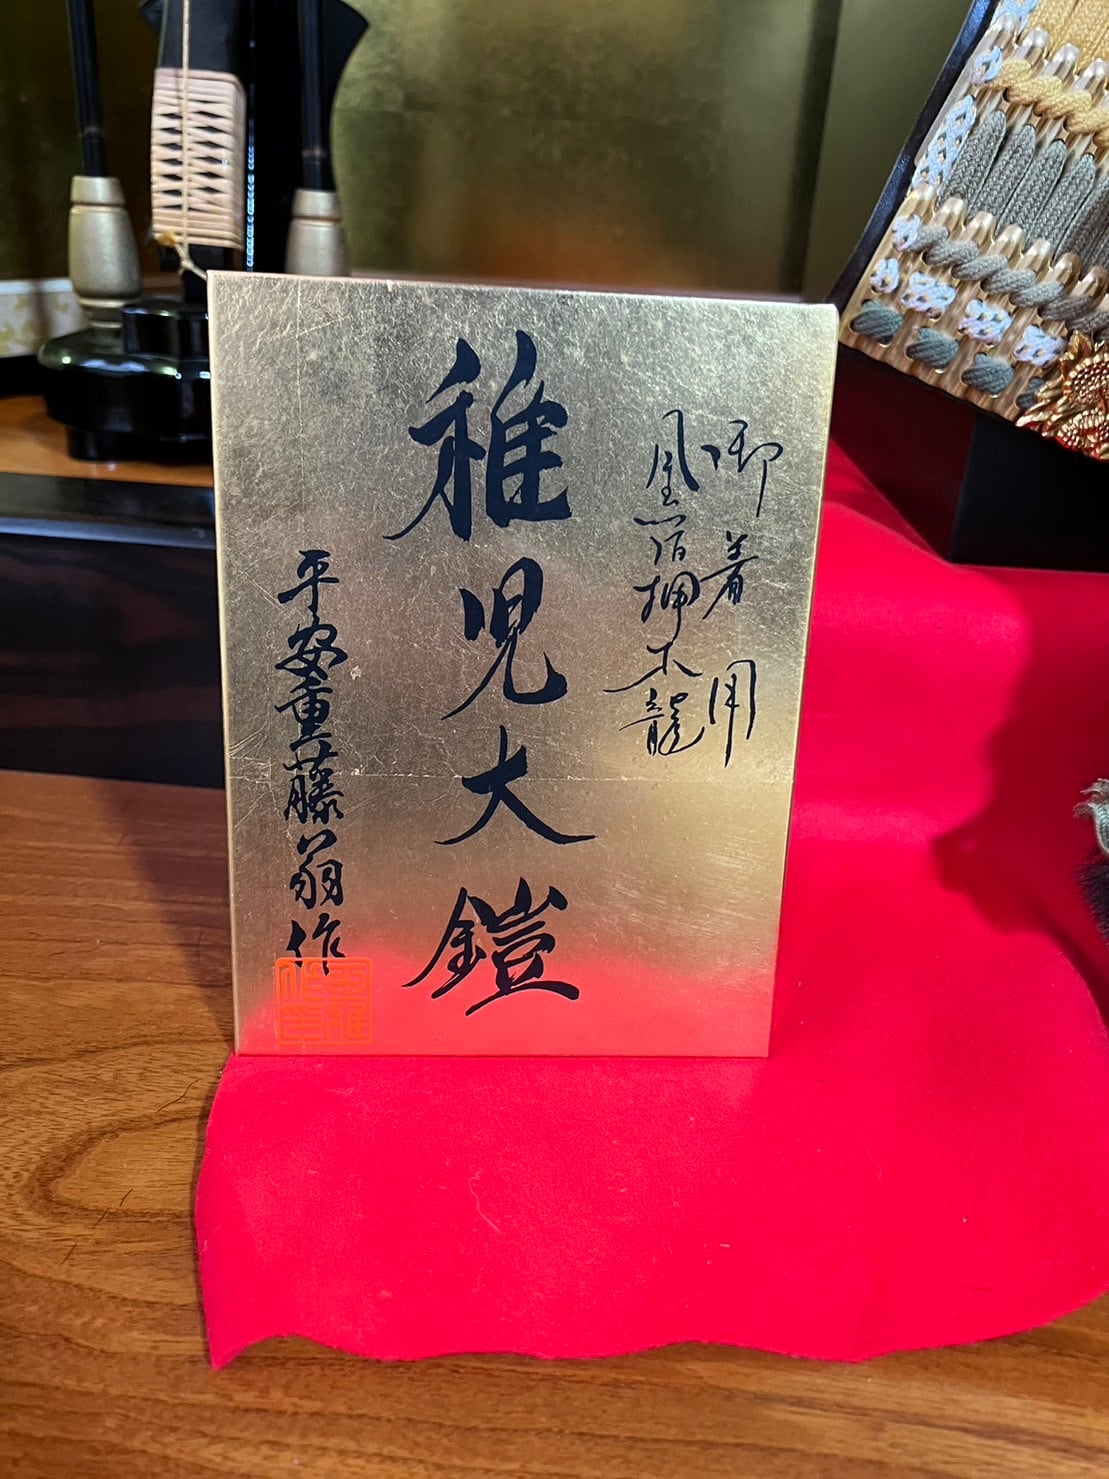 御着用
金箔押木龍
稚児大鎧
平安重藤翁作